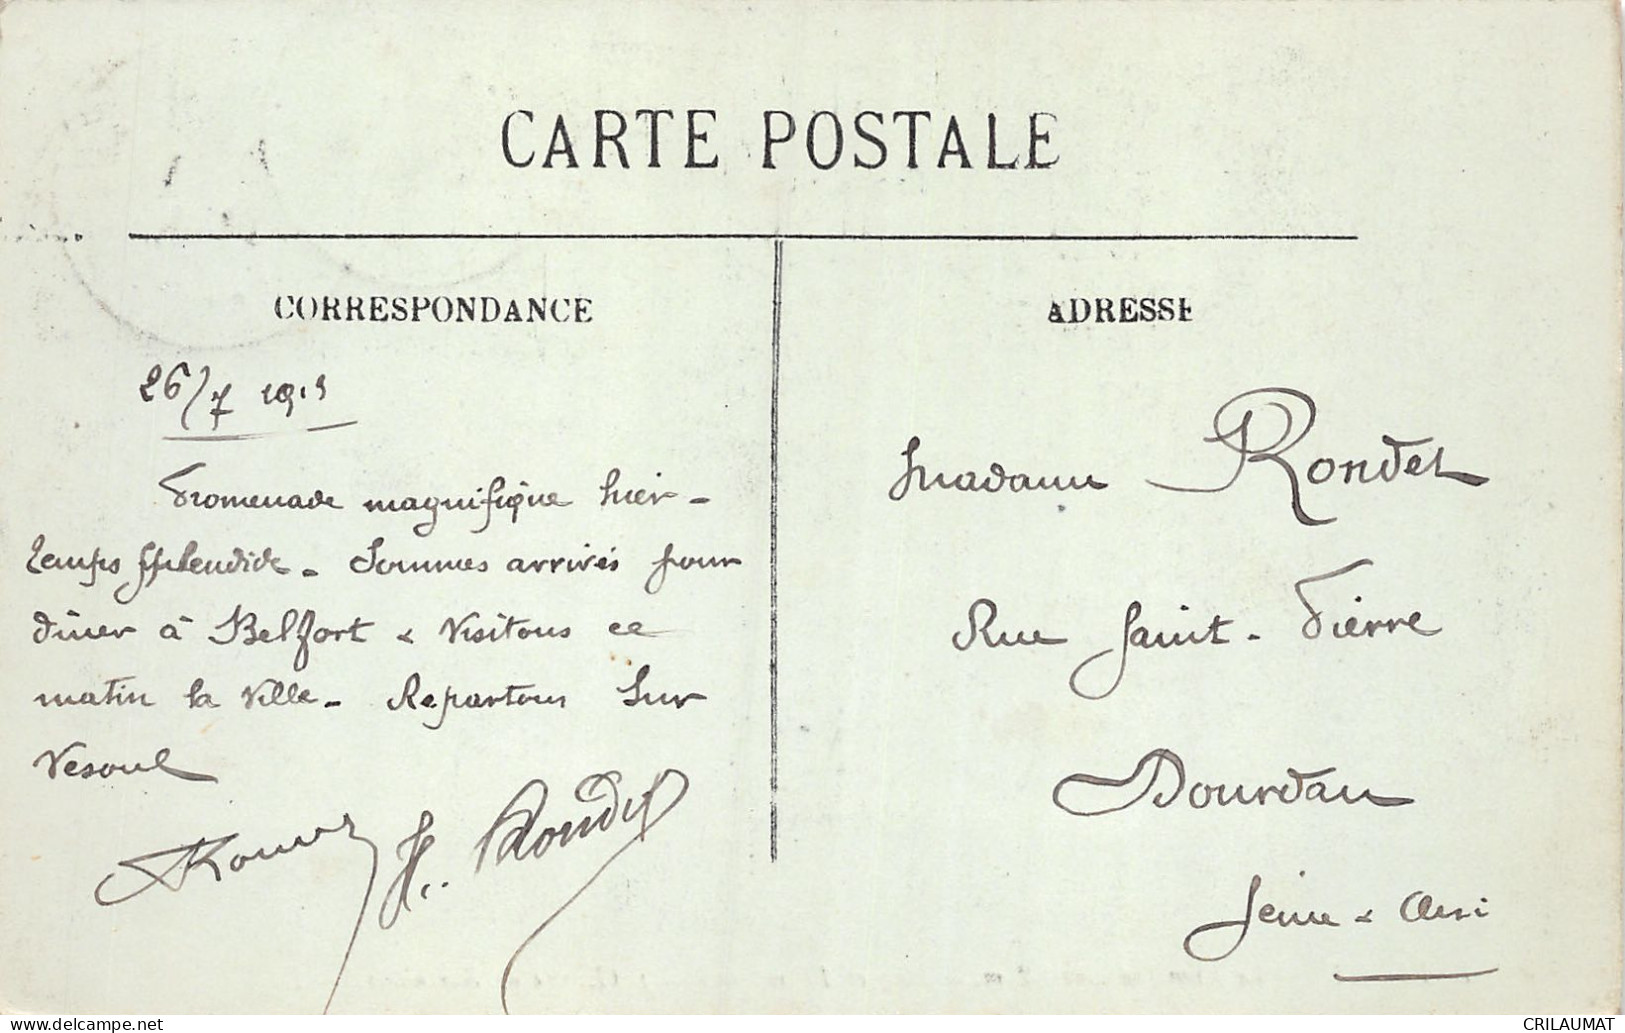 CARTE POSTALE
CORRESPONDANCE
26/7 1913
Promenade magnifique hier -
temps splendide - Sommes arrivés pour
dîner à Belfort & visitons ce
matin la ville - Repartons sur
Vesoul
H. Rondet
ADRESSE
Madame Rondet
Rue Saint-Pierre
Dourdan
Seine & Oise
CRILAUMAT